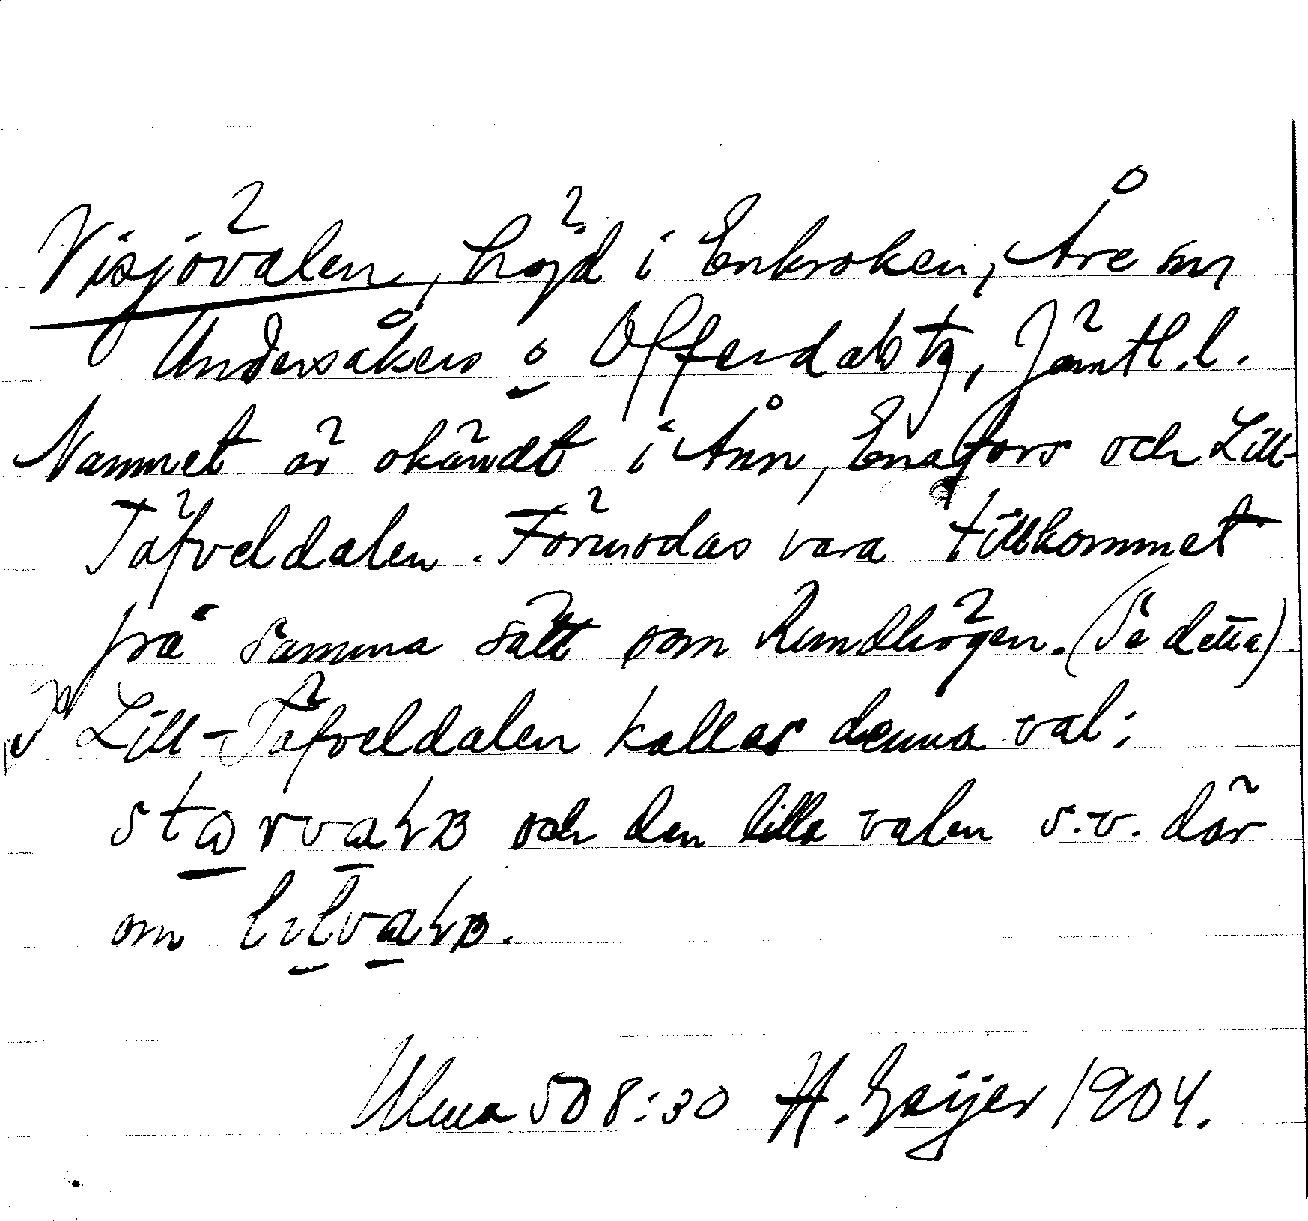 Visjövålen, höjd i Enkroken, Åre sn
Undersåkers o Offerdals tg, Jämtl.l.
Namnet är okändt i Ånn, Enafors och Lill-
Täfveldalen. Förmodas vara tillkommet
på samma sätt som Rundhögen. (Se detta).
I Lill-Täfveldalen kallas denna val:
och den lilla valen s.v. där
om
Ulma 508:30 H. Geijer 1904.